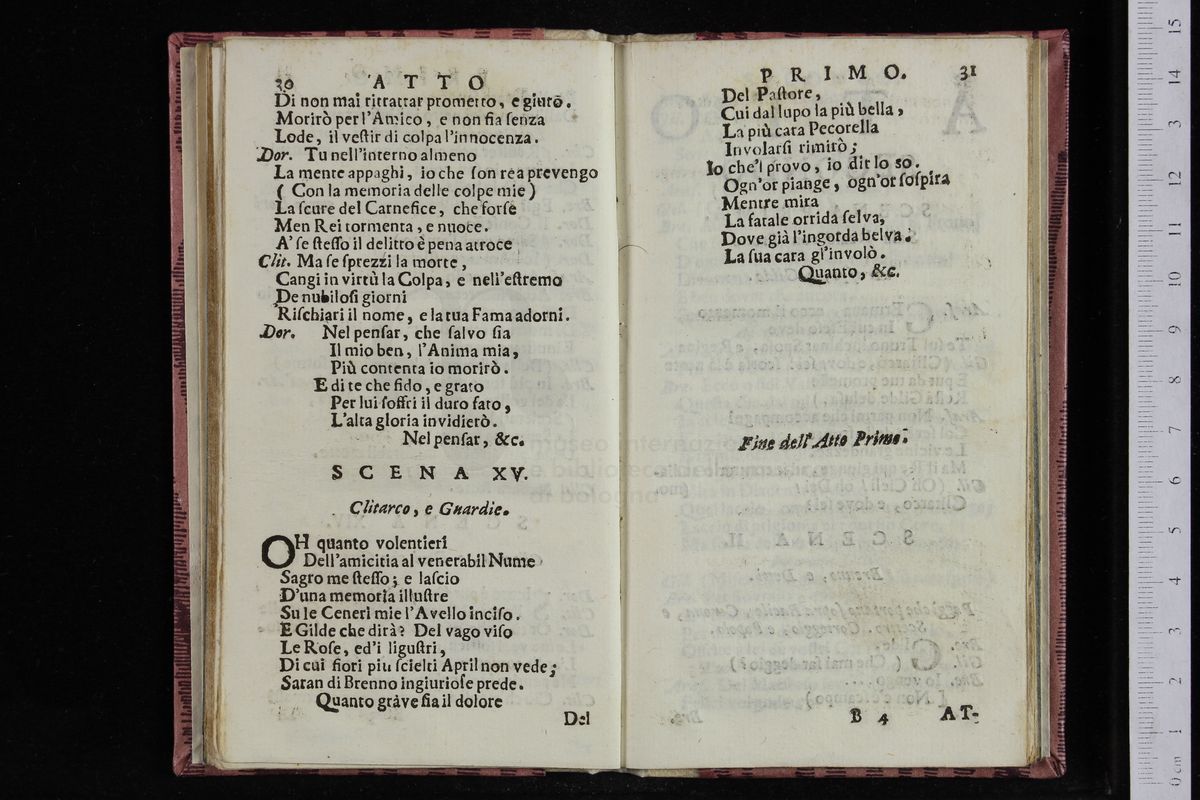 30 ATTO
Di non mai rittrattar prometto, e giuro.
Morirò per l'Amico, e non fia senza
Lode, il vestir di colpa l'innocenza.
Dor. Tu nell'interno almeno
La mente appaghi, io che son rea prevengo
( Con la memoria delle colpe mie )
La scure del Carnefice, che forse
Men Rei tormenta, e nuoce.
A' se stesso il delitto è pena atroce
Clit. Ma se sprezzi la morte,
Cangi in virtù la Colpa, e nell'estremo
De nubilosi giorni
Rischiari il nome, e la tua Fama adorni.
Dor. Nel pensar, che salvo sia
Il mio ben, l'Anima mia,
Più contenta io morirò.
E di te che fido, e grato
Per lui soffri il duro fato,
L'alta gloria invidierò.
Nel pensar, &c.
SCENA XV.
Clitarco, e Guardie.
OH quanto volentieri
Dell'amicitia al venerabil Nume
Sagro me stesso; e lascio
D'una memoria illustre
Su le Ceneri mie l'Avello inciso.
E Gilde che dirà? Del vago viso
Le Rose, ed'i ligustri,
Di cui fiori piu scielti April non vede;
Saran di Brenno ingiuriose prede.
Quanto gràve sia il dolore
Del
PRIMO. 31
Del Pastore,
Cui dal lupo la più bella,
La più cara Pecorella
Involarsi rimirò;
Io che'l provo, io dir lo so.
Ogn'or piange, ogn'or sospira
Mentre mira
La fatale orrida selva,
Dove già l'ingorda belva.
La sua cara gl'involò.
Quanto, &c.
Fine dell'Atto Primo.
B 4 AT-